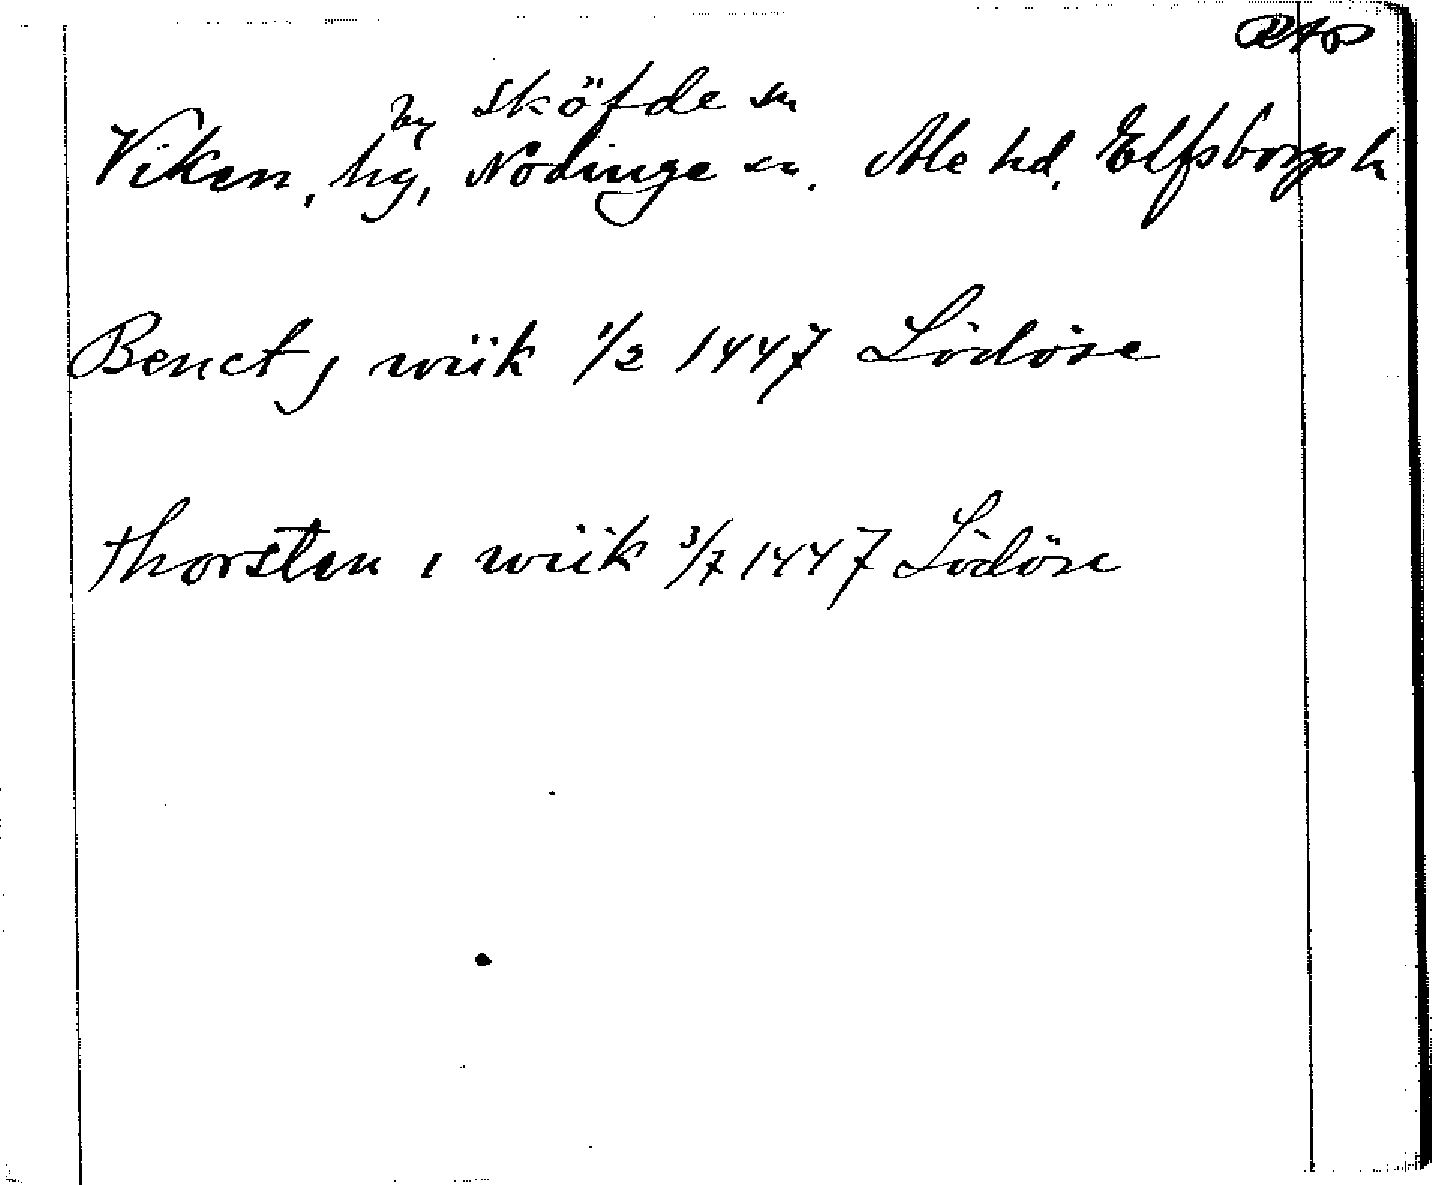 by Sköfde sn
Viken, hg, Nödinge sn. Ale hd. Elfsborgs l.
Benct j wiik 1/2 1447 Lödöse
Thorsten i wiik 3/7 1447 Lödöse